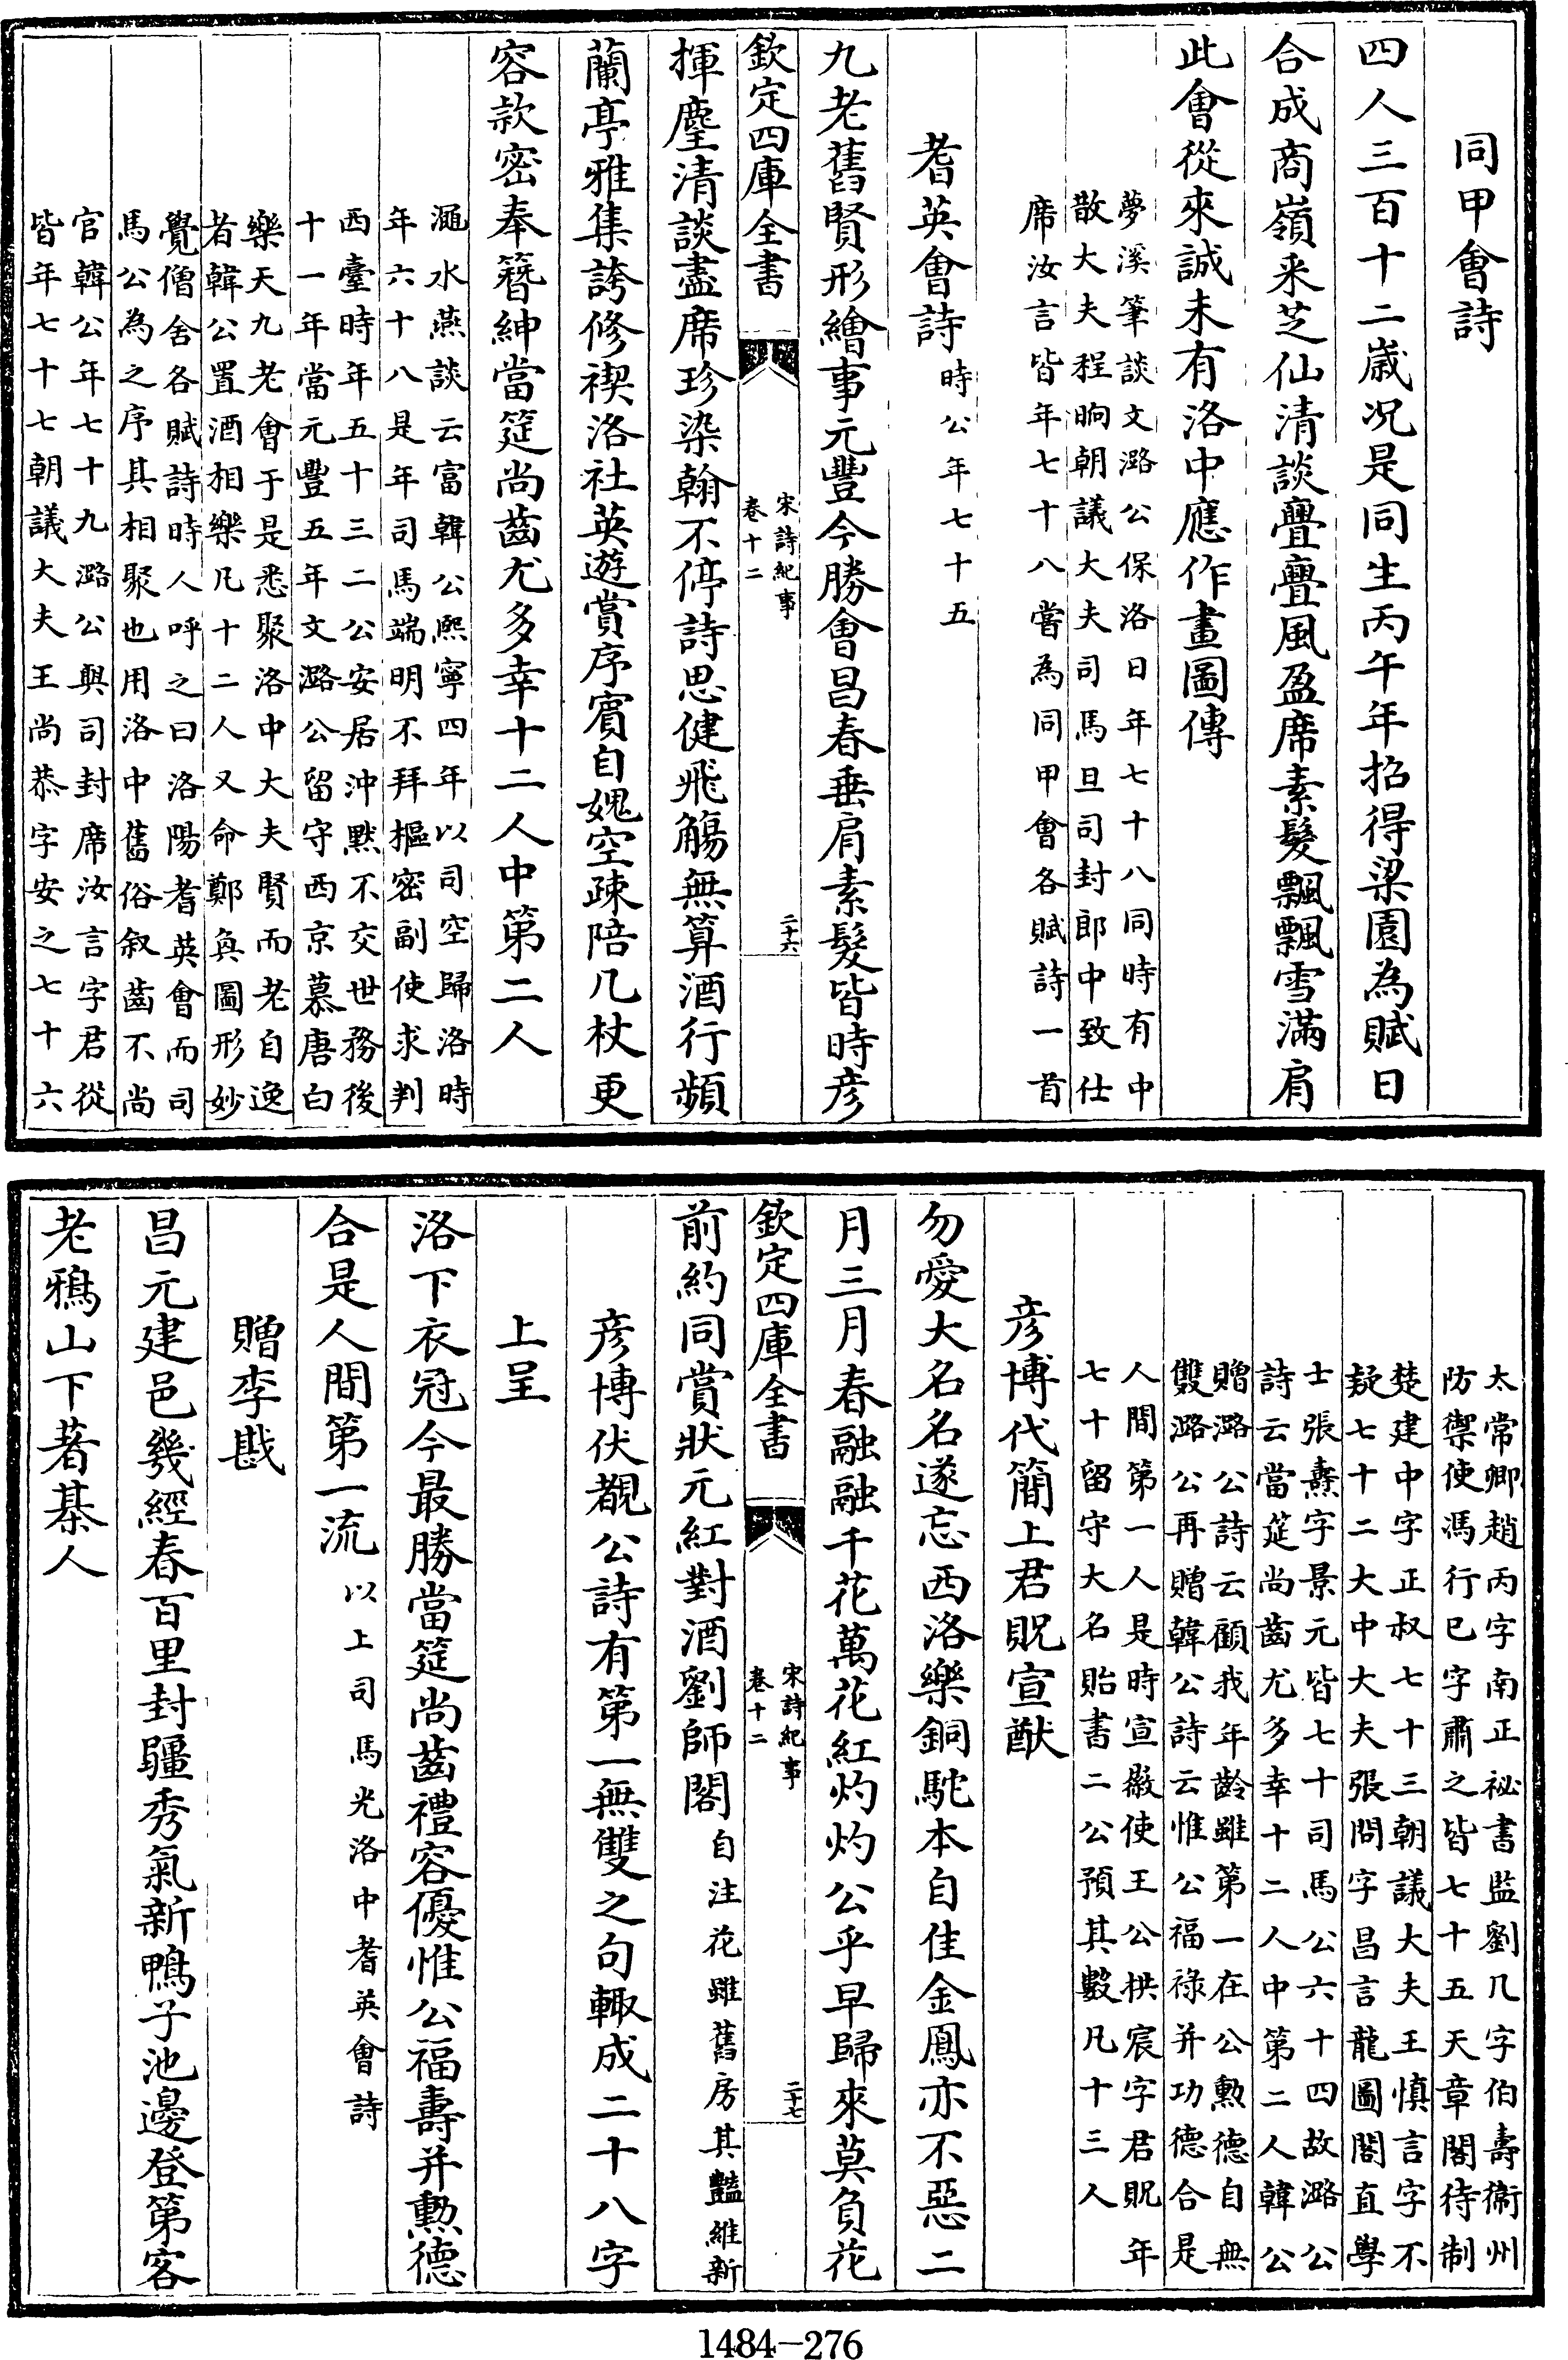 同甲會詩
四人三百十二歲况是同生丙午年招得梁園為賦日
合成商嶺采芝仙清談亹亹風盈席素髮飄飄雪滿肩
此會從來誠未有洛中應作畫圖傳
夢溪筆談文潞公保洛日年七十八同時有中
散大夫程晌朝議大夫司馬旦司封郎中致仕
席汝言皆年七十八嘗為同甲會各賦詩一首
耆英會詩時公年七十五
九老舊賢形繪事元豐今勝會昌春垂肩素髮皆時彦
欽定四庫全書
宋詩紀事
卷十二
二十六
揮麈清談盡席珍染翰不停詩思健飛觴無算酒行頻
蘭亭雅集誇修禊洛社英遊賞序賓自媿空疎陪几杖更
容款密奉簪紳當筵尚齒尤多幸十二人中第二人
澠水燕談云富韓公熈寧四年以司空歸洛時
年六十八是年司馬端明不拜樞密副使求判
西臺時年五十三二公安居沖黙不交世務後
十一年當元豐五年文潞公留守西京慕唐白
樂天九老會于是悉聚洛中大夫賢而老自逸
者韓公置酒相樂凡十二人又命鄭奐圖形妙
覺僧舍各賦詩時人呼之曰洛陽耆英會而司
馬公為之序其相聚也用洛中舊俗叙齒不尚
官韓公年七十九潞公與司封席汝言字君從
皆年七十七朝議大夫王尚恭字安之七十六
太常卿趙丙字南正祕書監劉几字伯壽衞州
防禦使馮行已字肅之皆七十五天章閣待制
楚建中字正叔七十三朝議大夫王慎言字不
疑七十二大中大夫張問字昌言龍圖閣直學
士張燾字景元皆七十司馬公六十四故潞公
詩云當筵尚齒尤多幸十二人中第二人韓公
贈潞公詩云顧我年齡雖第一在公勲德自無
雙潞公再贈韓公詩云惟公福祿并功德合是
人間第一人是時宣徽使王公拱宸字君貺年
七十留守大名貽書二公預其數凡十三人
彦博代簡上君貺宣猷
勿愛大名名遂忘西洛樂銅駝本自佳金鳳亦不惡二
月三月春融融千花萬花紅灼灼公乎早歸來莫負花
欽定四庫全書
宋詩紀事
卷十二
二十七
前約同賞狀元紅對酒劉師閣自注花雖舊房其豔維新
彦博伏覩公詩有第一無雙之句輙成二十八字
上呈
洛下衣冠今最勝當筵尚齒禮容優惟公福壽并勲德
合是人間第一流以上司馬光洛中耆英會詩
贈李戡
昌元建邑幾經春百里封疆秀氣新鴨子池邊登第客
老鴉山下著棊人
1484-276